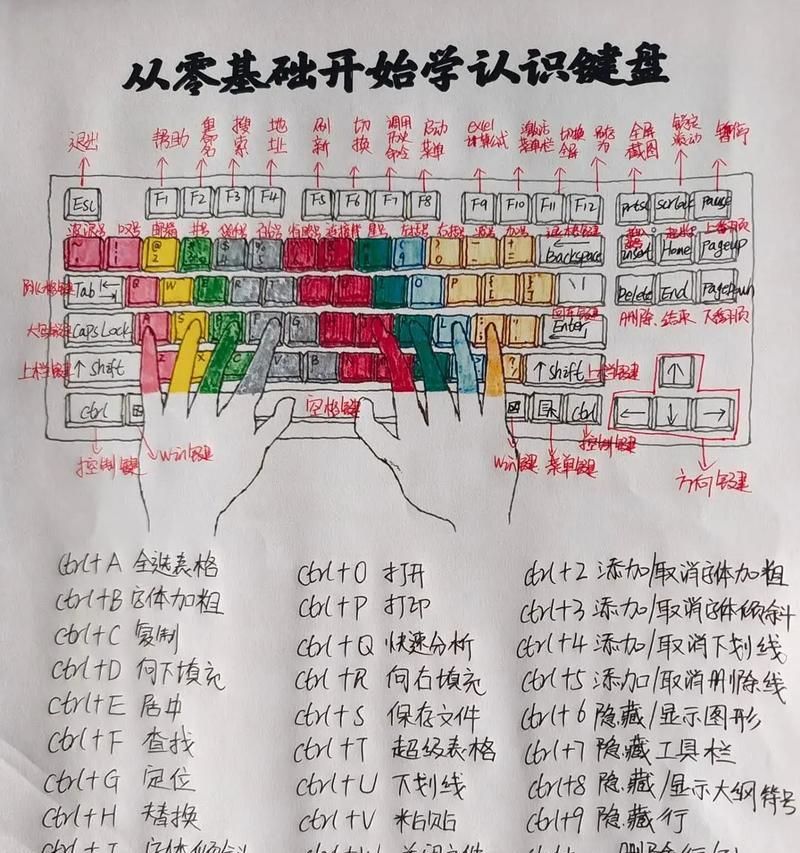 从零基础开始学认识键盘
退出 帮助 重命名 搜索 地址 刷新 切换 调用历史命令 启动菜单 excel 激活菜单栏 切换全屏 另存为 全屏截图 锁定滚动 暂停
Esc F1 F2 F3 F4 F5 F6 F7 F8 F9 F10 F11 F12 prtsc scrlock pause
波浪号 邮箱 井号 百分号 星号 左括号 右括号 加号 退格键
~ @ 2 Backspace insert Home Pageup 上翻页
Tab Q W E R T O P \ | Delete End Pagedown
删除 结束 下翻页
Caps Lock S F G L 回车键 Enter
上档键 ↑ shift X C V B ↑ shift 上档键 ↑
ctrl 空格键 ctrl ← ↓ →
控制键 Win键 Win键 菜单键 控制键 方向键
ctrl+A 全选表格
ctrl+B 字体加粗
ctrl+C 复制
ctrl+D 向下填充
ctrl+E 居中
ctrl+F 查找
ctrl+G 定位
ctrl+H 替换
ctrl+I 字体倾斜
ctrl+O 打开
ctrl+P 打印
ctrl+Q 快速分析
ctrl+R 向右填充
ctrl+S 保存文件
ctrl+T 超级表格
ctrl+U 下划线
ctrl+V 粘贴
ctrl+W 关闭文件
ctrl+2 添加/取消字体加粗
ctrl+3 添加/取消字体倾斜
ctrl+4 添加/取消下划线
ctrl+5 添加/取消删除线
ctrl+6 隐藏/显示图形
ctrl+7 隐藏工具栏
ctrl+8 隐藏/显示大纲符号
ctrl+9 隐藏行